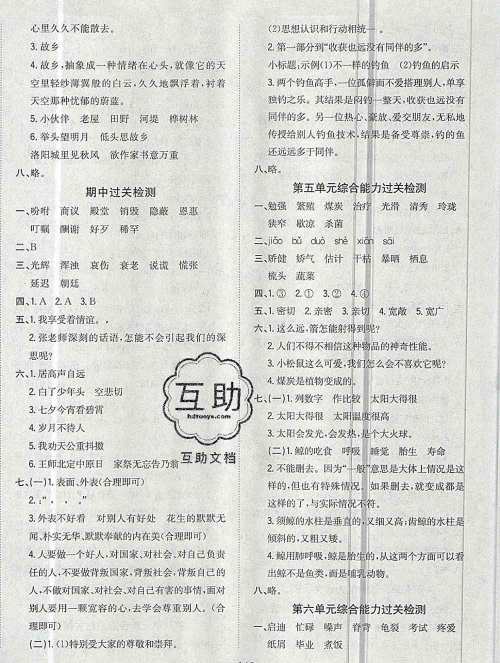 心里久久不能散去。
3. 故乡
4. 故乡,抽象成一种情绪在心头,就像它的天
空里轻纱薄翼般的白云,久久地飘浮着,衬着
天空那种忧郁的蔚蓝。
5. 小伙伴 老屋 田野 河堤 桦树林
6. 举头望明月 低头思故乡
洛阳城里见秋风 欲作家书意万重
八、略。
期中过关检测
一、吩咐 商议 殿堂 销毁 隐蔽 恩惠
叮嘱 酬谢 好歹 稀罕
二、B
三、光辉 浑浊 哀伤 衰老 谎言 慌张
延迟 朝廷
四、1. A 2. A 3. B
五、1. 我享受着情谊。
2. 张老师深刻的话语,怎能不会引起我们的深
思呢?
六、1. 居高声自远
2. 白了少年头 空悲切
3. 七夕今宵看碧霄
4. 岁月不待人
5. 我劝天公重抖擞
6. 王师北定中原日 家祭无忘告乃翁
七、(一)1. 表面、外表(合理即可)
3. 外表不好看 对别人有好处 花生的默默无
闻、朴实无华、默默奉献的内在美(合理即可)
4. 人要做一个好人,对国家、对社会、对自己负责
任的人,不要做背叛国家,背叛社会,背叛自己的
人,不做对国家、对社会、对自己有害的事情,面对
别人要用一颗宽容的心,去学会尊重别人。(合
理即可)
(二)1. (1)特别受大家的尊敬和崇拜。
(2)思想认识和行动相统一。
2. 第一部分到“收获也远没有同伴的多”。
小标题:示例(1)不一样的钓鱼 (2)钓鱼的启示
3. 两个钓鱼高手,一位孤僻而不爱搭理别人,单享
独钓之乐。其结果是闷钓一整天,收获也远没有
同伴的多。另一位热心、豪放、爱交朋友,无私地
传授给别人钓鱼技术,结果是备受尊崇,钓的鱼
还远远多于同伴。
八、略。
第五单元综合能力过关检测
一、勉强 繁殖 煤炭 治疗 光滑 清秀 玲珑
狭窄 歇凉 杀菌
二、jiāo bǔ duó shé xiān sāi
三、矫健 娇气 估计 干枯 暴晒 栖息
梳头 蔬菜
四、1. ③ 2. ① 3. ② 4. ①
五、1. 密切 2. 亲密 3. 亲切 4. 宽敞 5. 宽广
六、1. 这么远,箭怎能射得到呢?
2. 人们不得不相信这种物品的神奇性能。
3. 小松鼠这么可爱,我们怎么会不喜欢它呢?
4. 煤炭是植物变成的。
七、(一)1. 列数字 作比较 太阳大得很
2. 太阳大得很 太阳温度很高
3. 太阳会发光,会发热,是个大火球。
(二)1. 鲸的吃食 呼吸 睡觉 胎生 寿命
2. 不能删去。因为“一般”意思是大体上情况是这
样的,但也有特殊情况。如果删去,就变成都是
这样的了,与实际情况不符。
3. 须鲸的水柱是垂直的,又细又高;齿鲸的水柱是
倾斜的,又粗又矮。
4. 鲸用肺呼吸,鲸是胎生的,从这两个方面可以看
出鲸不是鱼类,而是哺乳动物。
八、略。
第六单元综合能力过关检测
一、启迪 忙碌 噪声 脊背 龟裂 考试 疼爱
纸屑 毕业 煮饭
互助
hdzuoye.com
互助文档